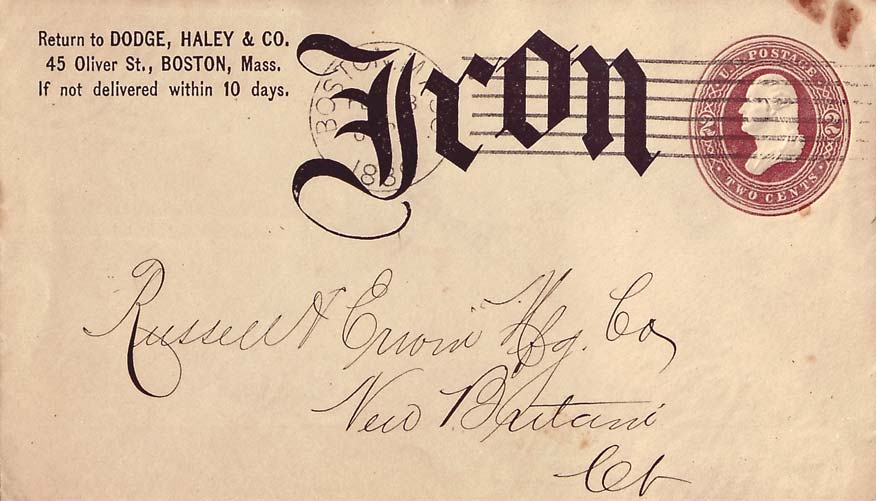 Return to DODGE, HALEY & CO.
45 Oliver St., BOSTON, Mass.
If not delivered within 10 days.
Iron
BOSTON, M
188
U.S. POSTAGE
2 2
TWO CENTS
Russell & Erwin Mfg. Co
New Britain
Ct